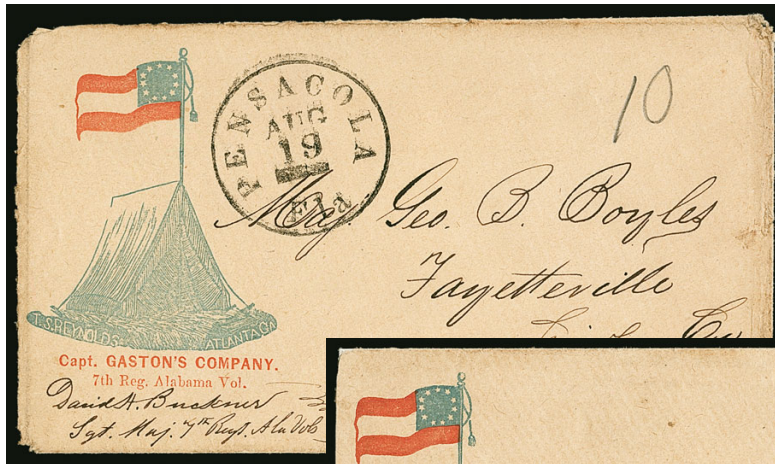 PENSACOLA
AUG
19
Fla
10
Maj. Geo. B. Boyles
Fayetteville
Co
T.S. REYNOLDS ATLANTA GA
Capt. GASTON'S COMPANY.
7th Reg. Alabama Vol.
David H. Buckner
Sgt. Maj. 7th Regt. Ala Vols